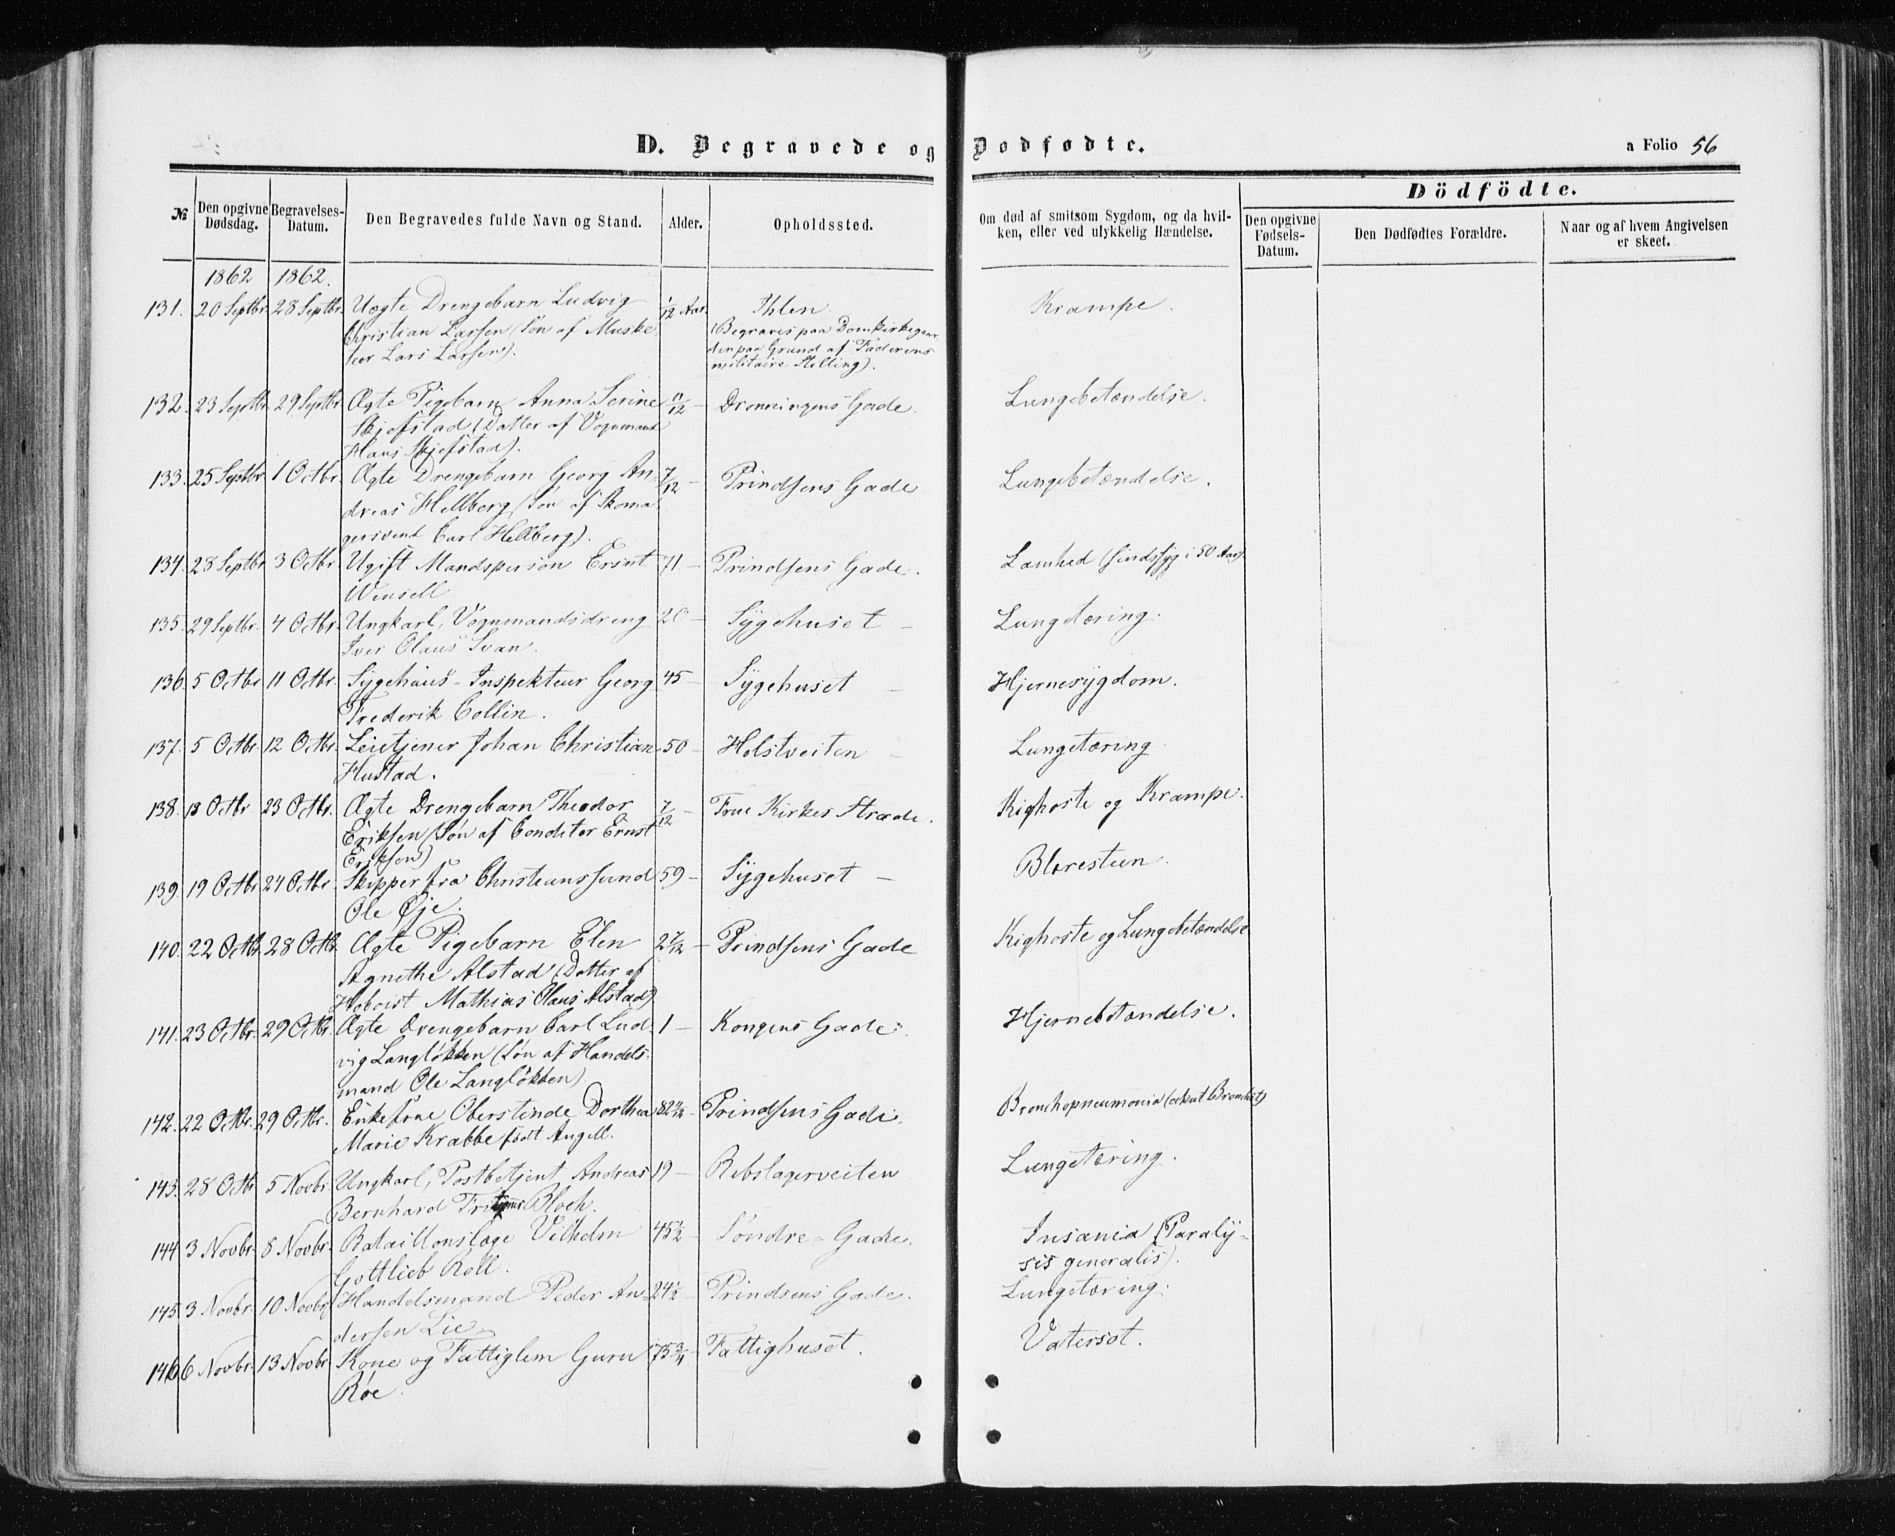 D. Begravede og Dødfødte.
a Folio 56
Dödfödte.
№
Den opgivne Dødsdag.
Begravelses-Datum.
Den Begravedes fulde Navn og Stand.
Alder.
Opholdssted.
Om død af smitsom Sygdom, og da hvil-
ken, eller ved ulykkelig Hændelse.
Den opgivne Fødsels-Datum.
Den Dødfødtes Forældre.
Naar og af hvem Angivelsen
er skeet.
1862 1862.
131. 20 Septbr. 28 Septbr. Uægte Drengebarn Ludvig 1/12 Aar. Ihlen Krampe.
Christian Larsen (Søn af Muske- (Begraves paa Domkirkegaar-
teer Lars Larsen). den paa Grund af Faderens
militaire Stilling).
132. 23 Septbr. 29 Septbr. Ægte Pigebarn Anna Serine 11/12 – Dronningens Gade. Lungebetændelse.
Skjefstad (Datter af Vognmand
Hans Skjefstad).
133. 25 Septbr. 1 Octbr. Ægte Drengebarn Georg An- 7/12 – Prindsens Gade Lungebetændelse.
dreas Hellberg (Søn af Skoma-
gersvend Carl Hellberg).
134. 28 Septbr. 3 Octbr. Ugift Mandsperson Ersnt 71 – Prindsens Gade. Lamhed (sindssyg i 50 Aar)
Wensell
135. 29 Septbr. 4 Octbr. Ungkarl, Vognmandsdreng 20 – Sygehuset – Lungetæring.
Iver Claus Svan.
136. 5 Octbr. 11 Octbr. Sygehuus-Inspekteur Georg 45 – Sygehuset – Hjernesygdom.
Frederik Collin.
137. 5 Octbr. 12 Octbr. Leietjener Johan Christian 50 – Holstveiten – Lungetæring
Hustad.
138. 13 Octbr 23 Octbr. Ægte Drengebarn Theodor 7/12 – Frue Kirkes Stræde. Kighoste og Krampe.
Eriksen (Søn af Conditor Ernst
Eriksen)
139. 19 Octbr. 24 Octbr. Skipper fra Christianssund 59 – Sygehuset – Blæresteen.
Ole Øje.
140. 22 Octbr. 28 Octbr. Ægte Pigebarn Elen 2 7/12 – Prindsens Gade Kighoste og Lungebetændelse
Agnethe Alstad (Datter af
Hoboist Mathias Claus Alstad)
141. 23 Octbr. 29 Octbr. Ægte Drengebarn Carl Lud- 1 – Kongens Gade. Hjernebetændelse.
vig Langløkken (Søn af Handels-
mand Ole Langløkken)
142. 22 Octbr. 29 Octbr. Enkefrue Oberstinde Dorthea 82 Prindsens Gade. Bronchopneumonia (akut Bronchit)
Marie Krabbe født Angell.
143. 28 Octbr. 5 Novbr. Ungkarl, Postbetjent Andreas 19 – Rebslagerveiten Lungetæring.
Bernhard Bloch.
144. 3 Novbr. 8 Novbr. Bataillonslæge Vilhelm 45 1/2 – Søndre-Gade. Insania (Paraly-
Gottlieb Roll. sis generalis).
145. 3 Novbr. 10 Novbr. Handelsmand Peder An- 24 1/2 – Prindsens Gade. Lungetæring.
dersen Lie
146. 6 Novbr. 13 Novbr. Kone og Fattiglem Guru 75 3/4 – Fattighuset. Vatersot.
Røe.